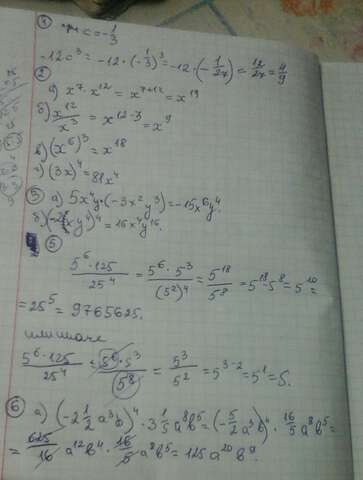 ① при c = -1/3
-12c³ = -12·(-1/3)³ = -12·(-1/27) = 12/27 = 4/9
②
а) x⁷·x¹² = x⁷⁺¹² = x¹⁹
б) x¹²/x³ = x¹²⁻³ = x⁹
в) (x⁶)³ = x¹⁸
г) (3x)⁴ = 81x⁴
⑤ а) 5x⁴y·(-3x²y³) = -15x⁶y⁴.
(xy⁴)⁴ = 16x⁴y¹⁶.
⑤
5⁶·125/25⁴ = 5⁶·5³/(5²)⁴ = 5¹⁸/5⁸ = 5¹⁸⁻⁸ = 5¹⁰ =
= 25⁵ = 9765625.
или иначе
5⁶·125/25⁴ = 5⁶·5³/5⁸ = 5³/5² = 5³⁻² = 5¹ = 5.
⑥ а) (-2 1/2 a³b)⁴ · 3 1/5 a⁸b⁵ = (-5/2 a³b)⁴ · 16/5 a⁸b⁵ =
= 625/16 a¹²b⁴ · 16/5 a⁸b⁵ = 125a²⁰b⁹.